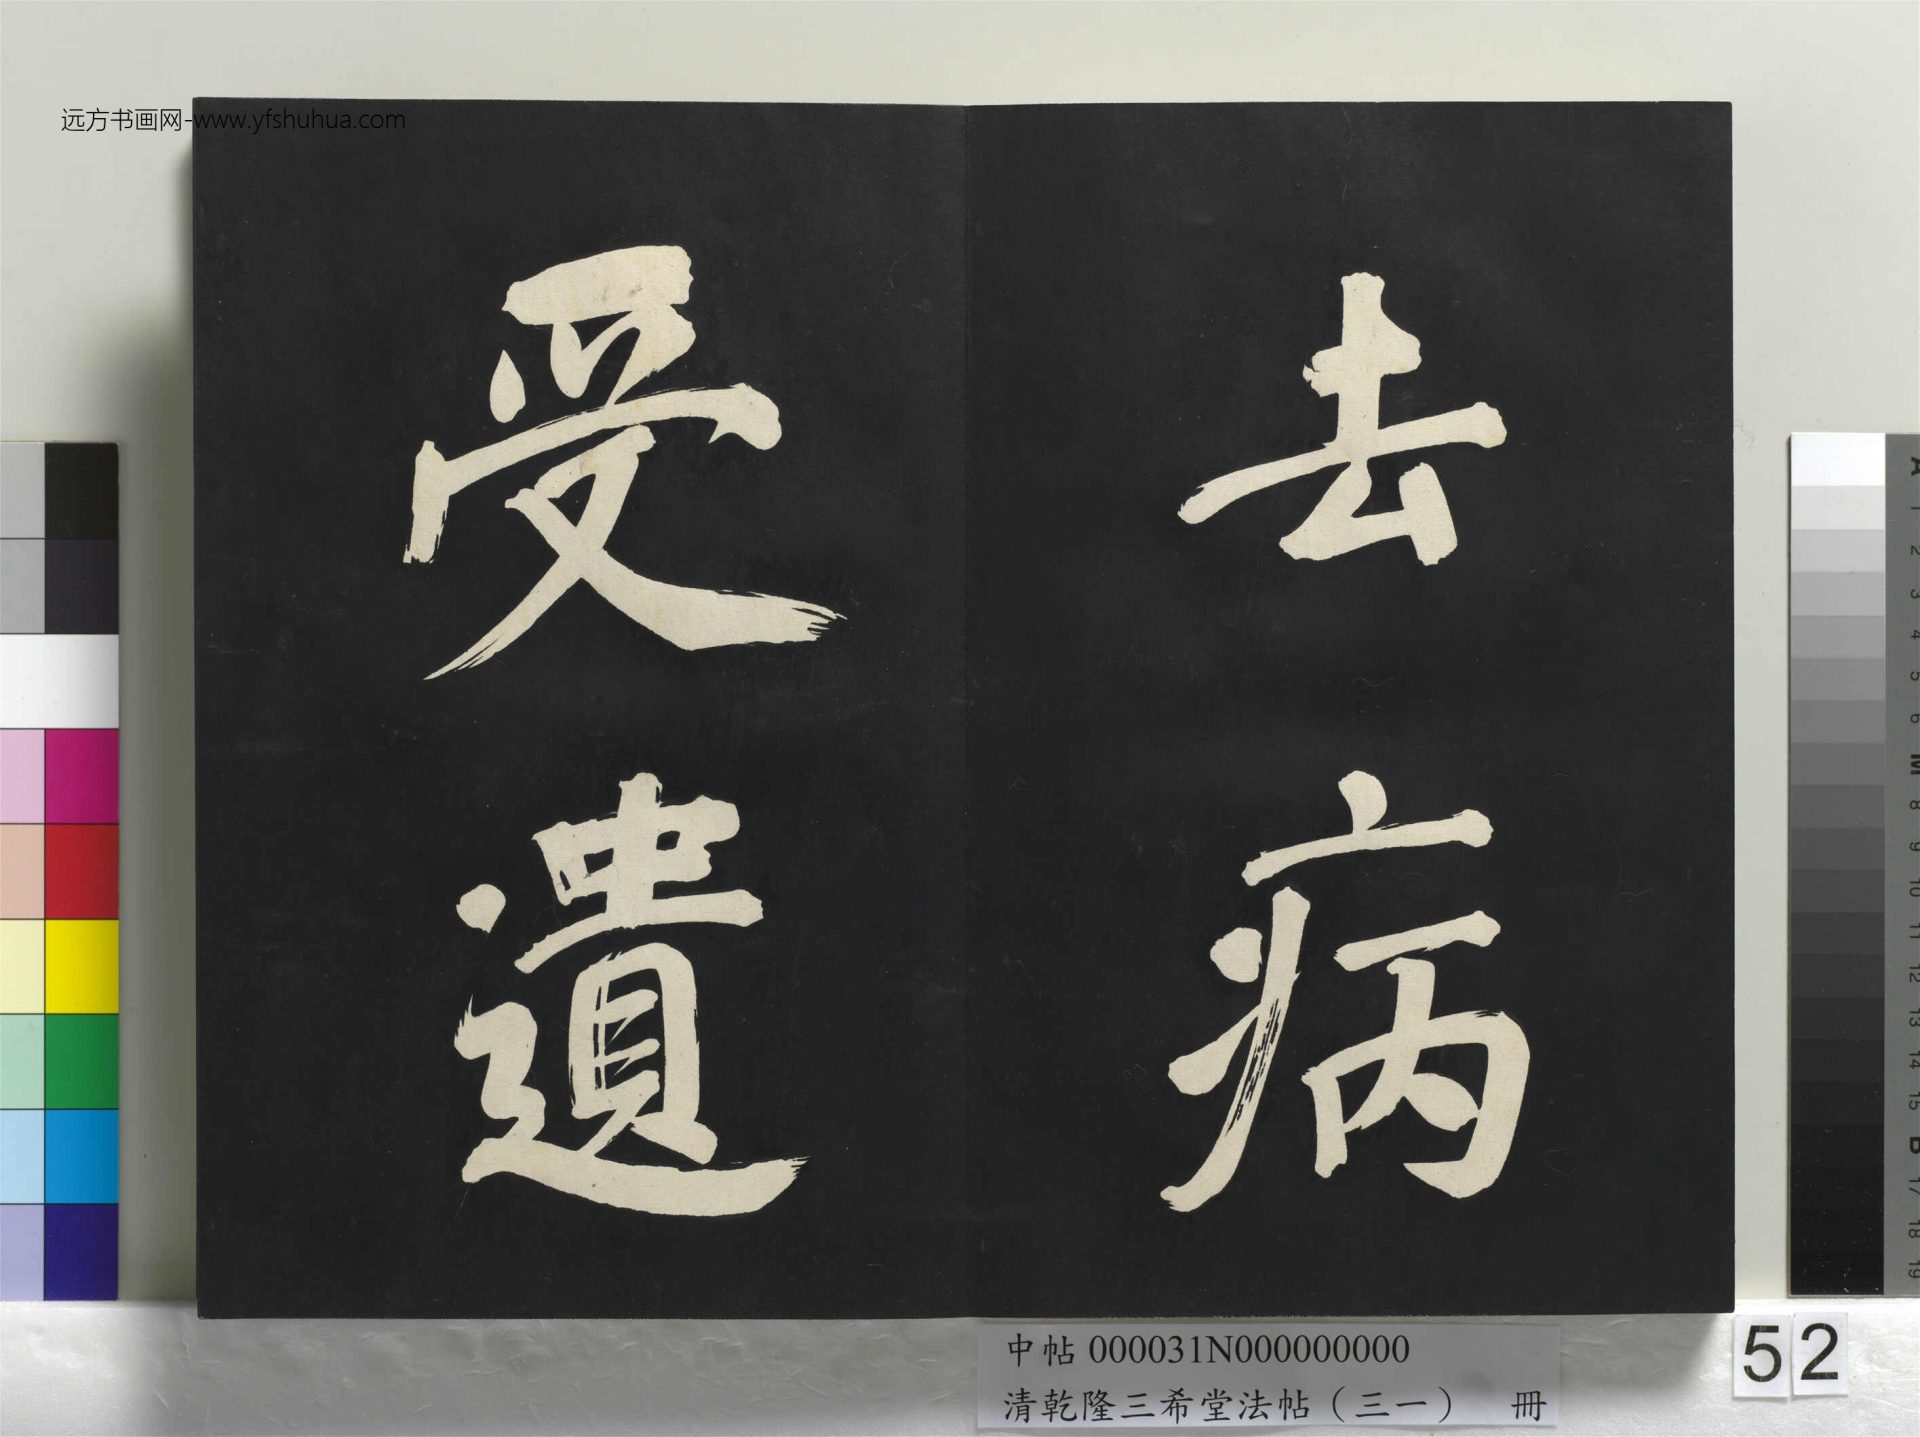 远方书画网-www.yfshuhua.com
去病
受遺
中帖 000031N000000000
清乾隆三希堂法帖（三一） 冊
52
A
1
2
3
4
5
6
M
8
9
10
11
12
13
14
15
B
17
18
19